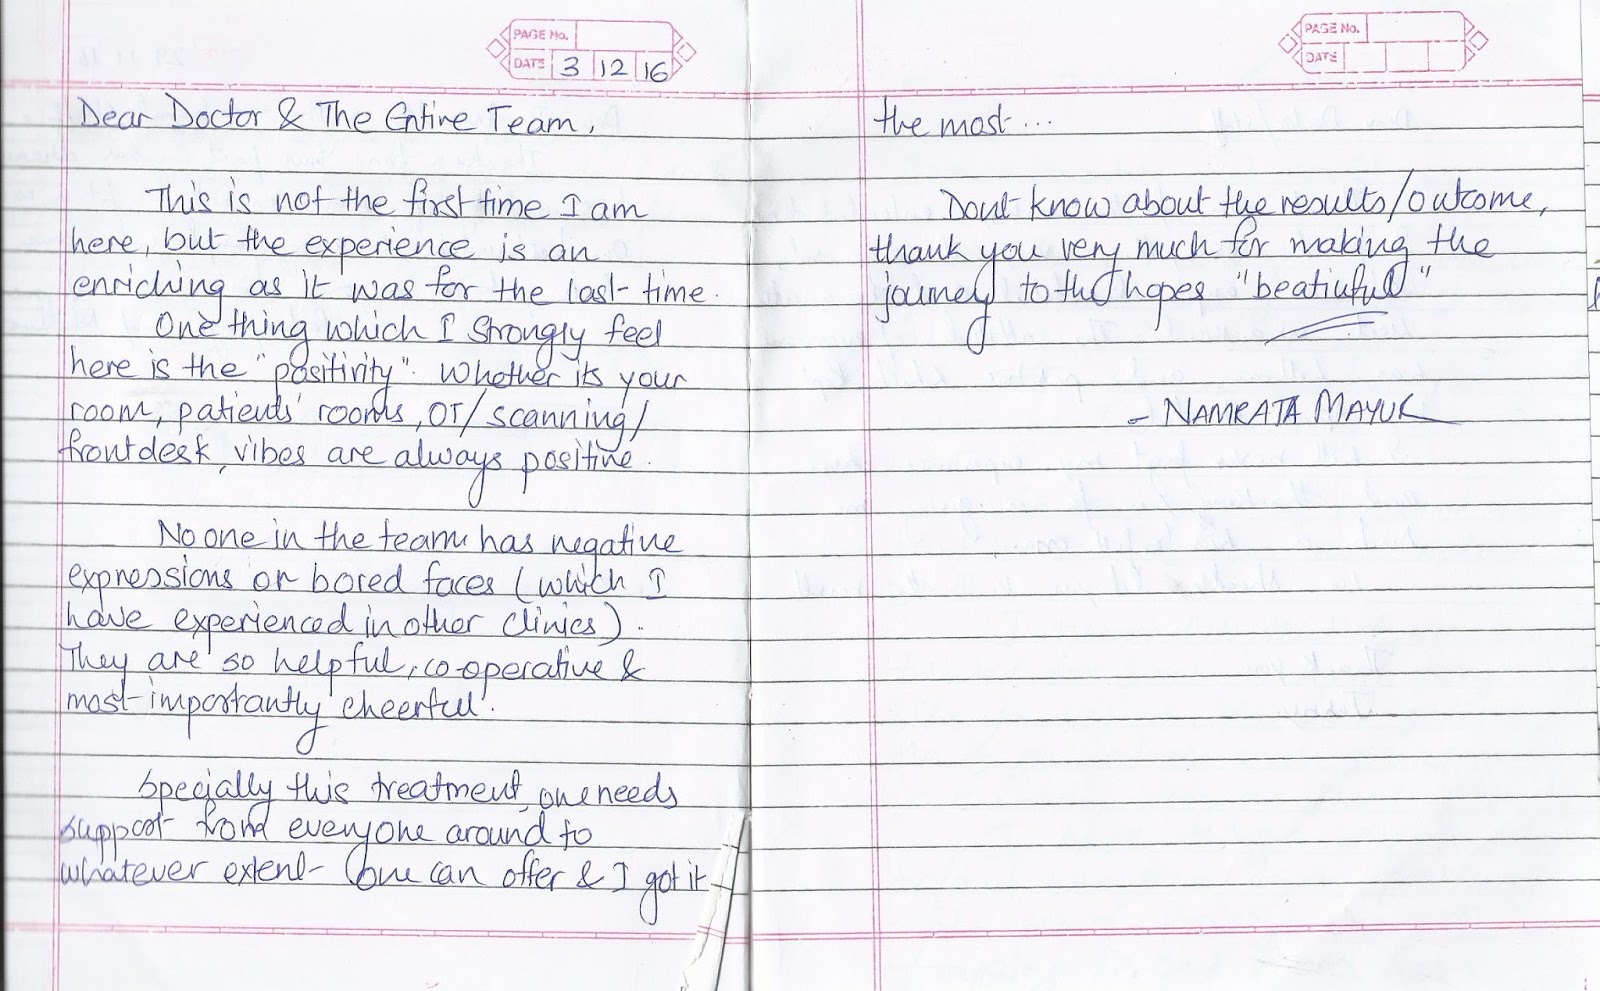 PAGE No.
DATE 3 12 16
Dear Doctor & The Entire Team,
This is not the first time I am
here, but the experience is an
enriching as it was for the last time.
One thing which I strongly feel
here is the "positivity". Whether its your
room, patients' rooms, OT/scanning/
frontdesk, vibes are always positive.
No one in the team has negative
expressions or bored faces (which I
have experienced in other clinics).
They are so helpful, co-operative &
most importantly cheerful.
Specially this treatment, one needs
support from everyone around to
whatever extent one can offer & I got it
PAGE No.
DATE
the most...
Dont know about the results/outcome,
thank you very much for making the
journey to the hopes "beatiuful"
- NAMRATA MAYUR